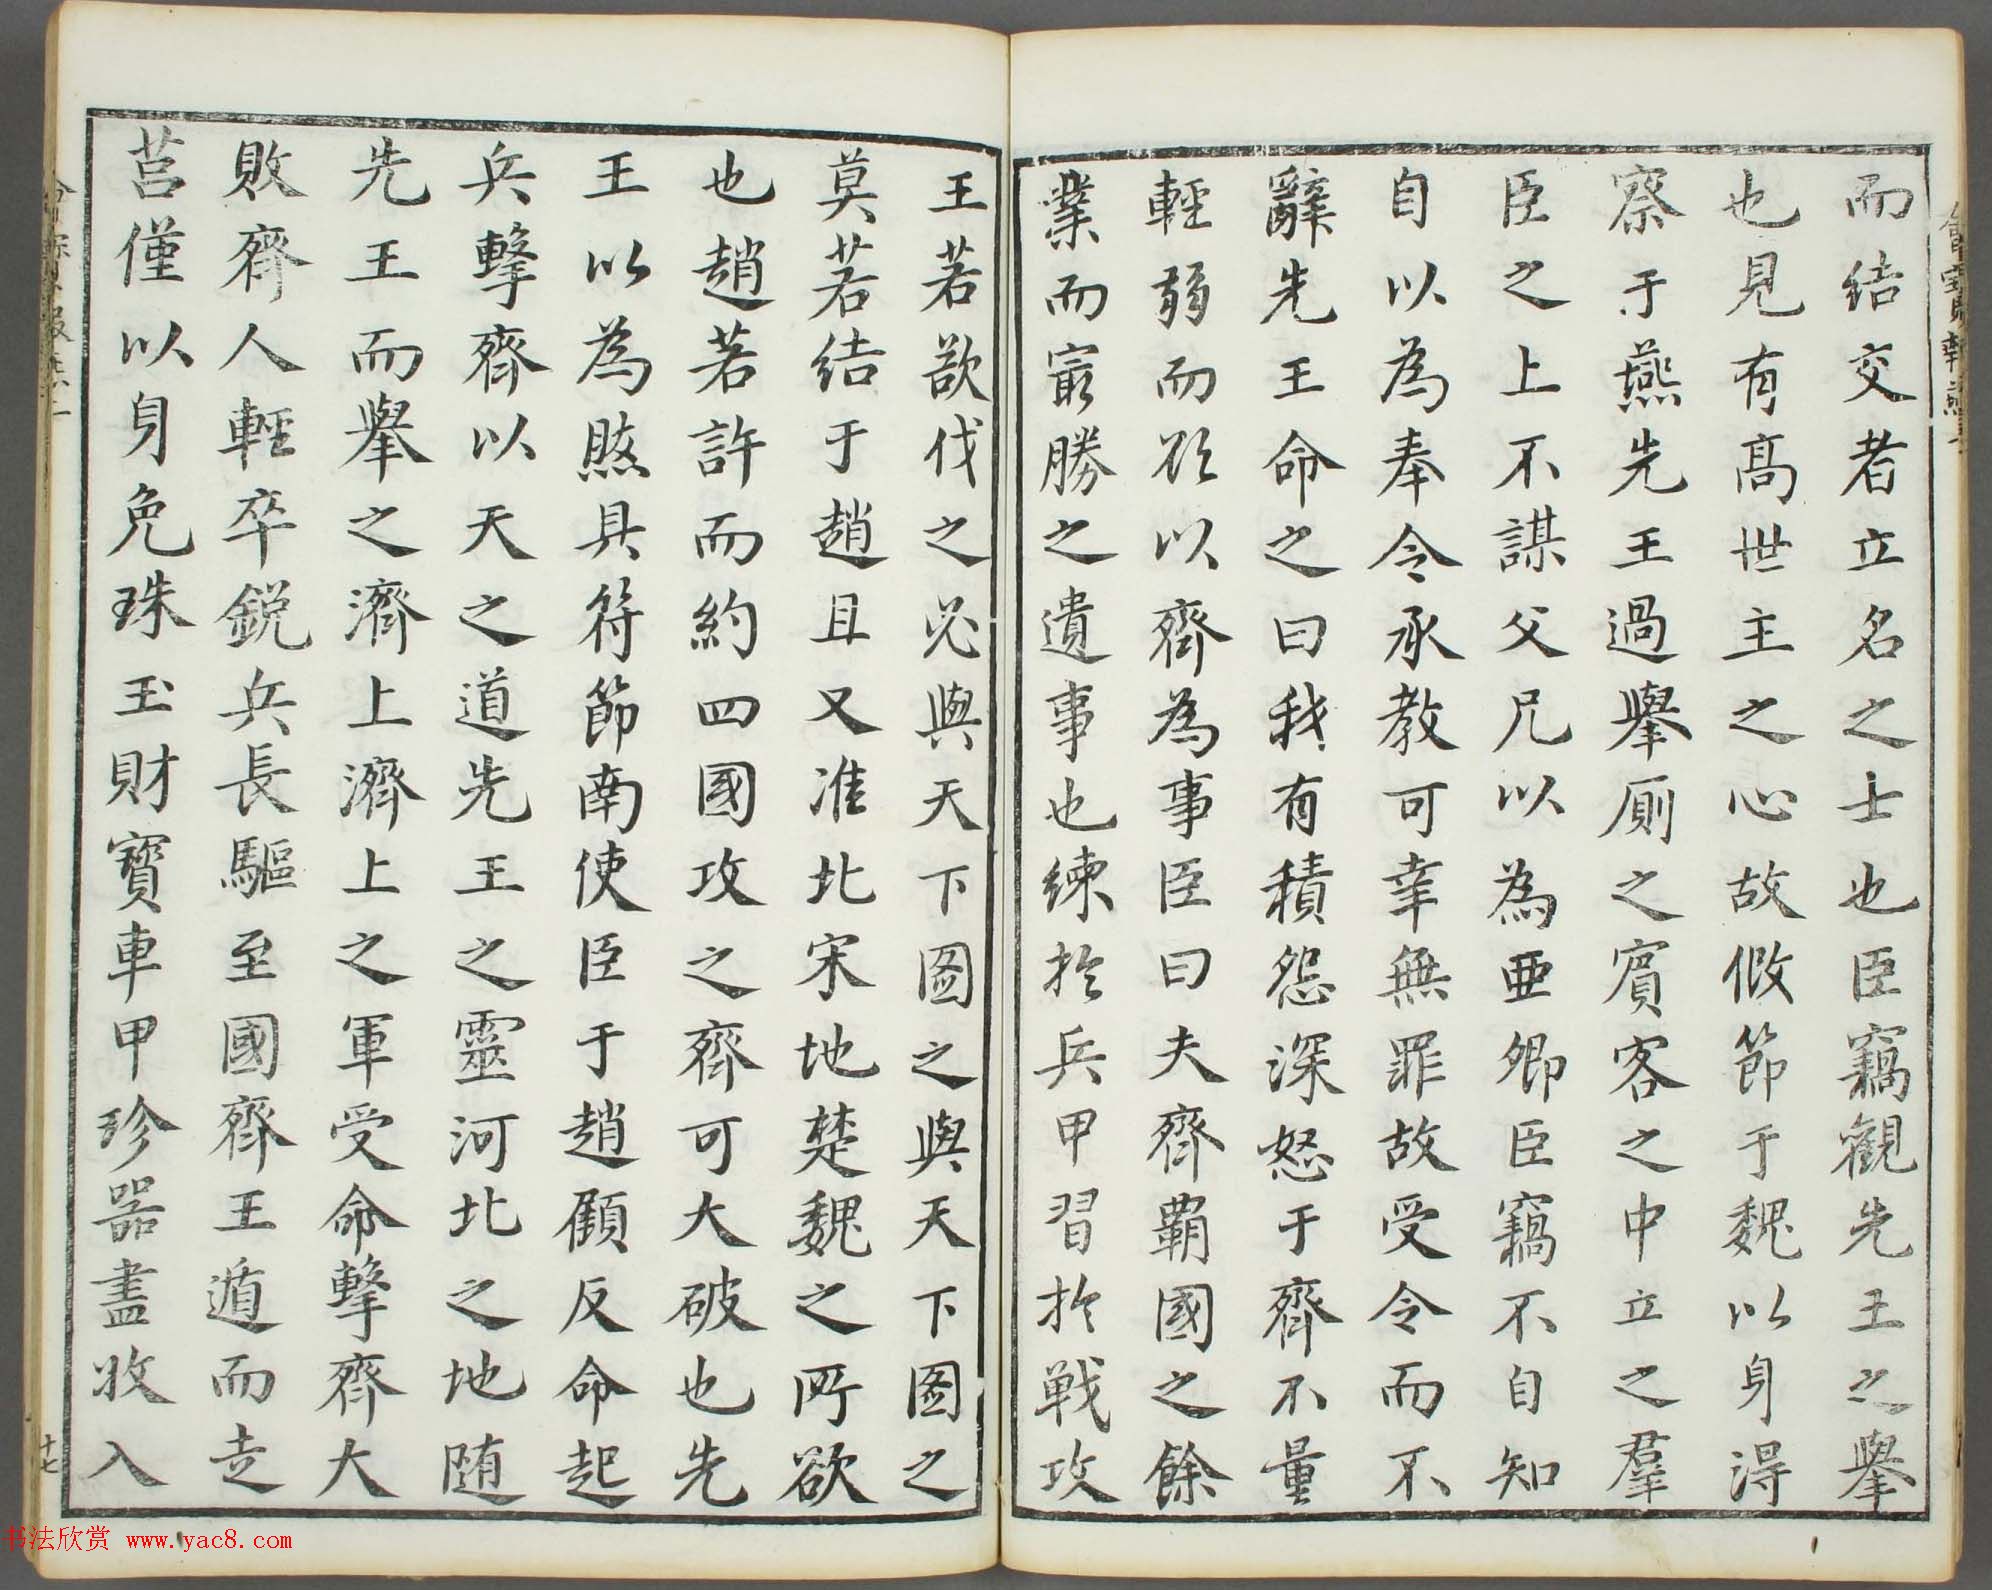 而结交者立名之士也臣竊觀先王之舉
也見有髙世主之心故假節于魏以身淂
察于燕先王過舉厠之賓客之中立之羣
臣之上不謀父兄以為亜卿臣竊不自知
自以為奉令承教可幸無罪故受令而不
辭先王命之曰我有積怨深怒于齊不量
輕弱而欲以齊為事臣曰夫齊覇國之餘
業而冣勝之遺事也練於兵甲習於戰攻
王若欲伐之必與天下圖之與天下圖之
莫若结于趙且又准北宋地楚魏之所欲
也趙若許而約四國攻之齊可大破也先
王以為然具符節南使臣于趙顧反命起
兵擊齊以天之道先王之靈河北之地随
先王而舉之濟上濟上之軍受命擊齊大
敗齊人輕卒鋭兵長驅至國齊王遁而走
莒僅以身免珠玉財寶車甲珍器盡收入
十七
书法欣赏 www.yac8.com